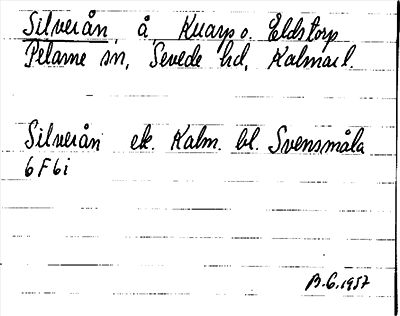 Silverån, å Kvarp o. Eldstorp
Pelarne sn, Sevede hd, Kalmar l.
Silverån ek. Kalm. bl. Svensmåla
6 F 6 i
B.G. 1957